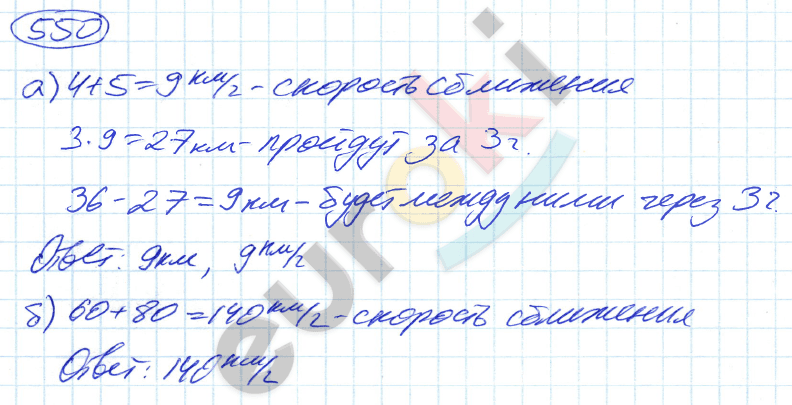 550
а) 4+5=9 км/г - скорость сближения
3·9=27 км - пройдут за 3 г.
36-27=9 км - будет между ними через 3 г.
Ответ: 9 км, 9 км/г
б) 60+80=140 км/г - скорость сближения
Ответ: 140 км/г
euroki